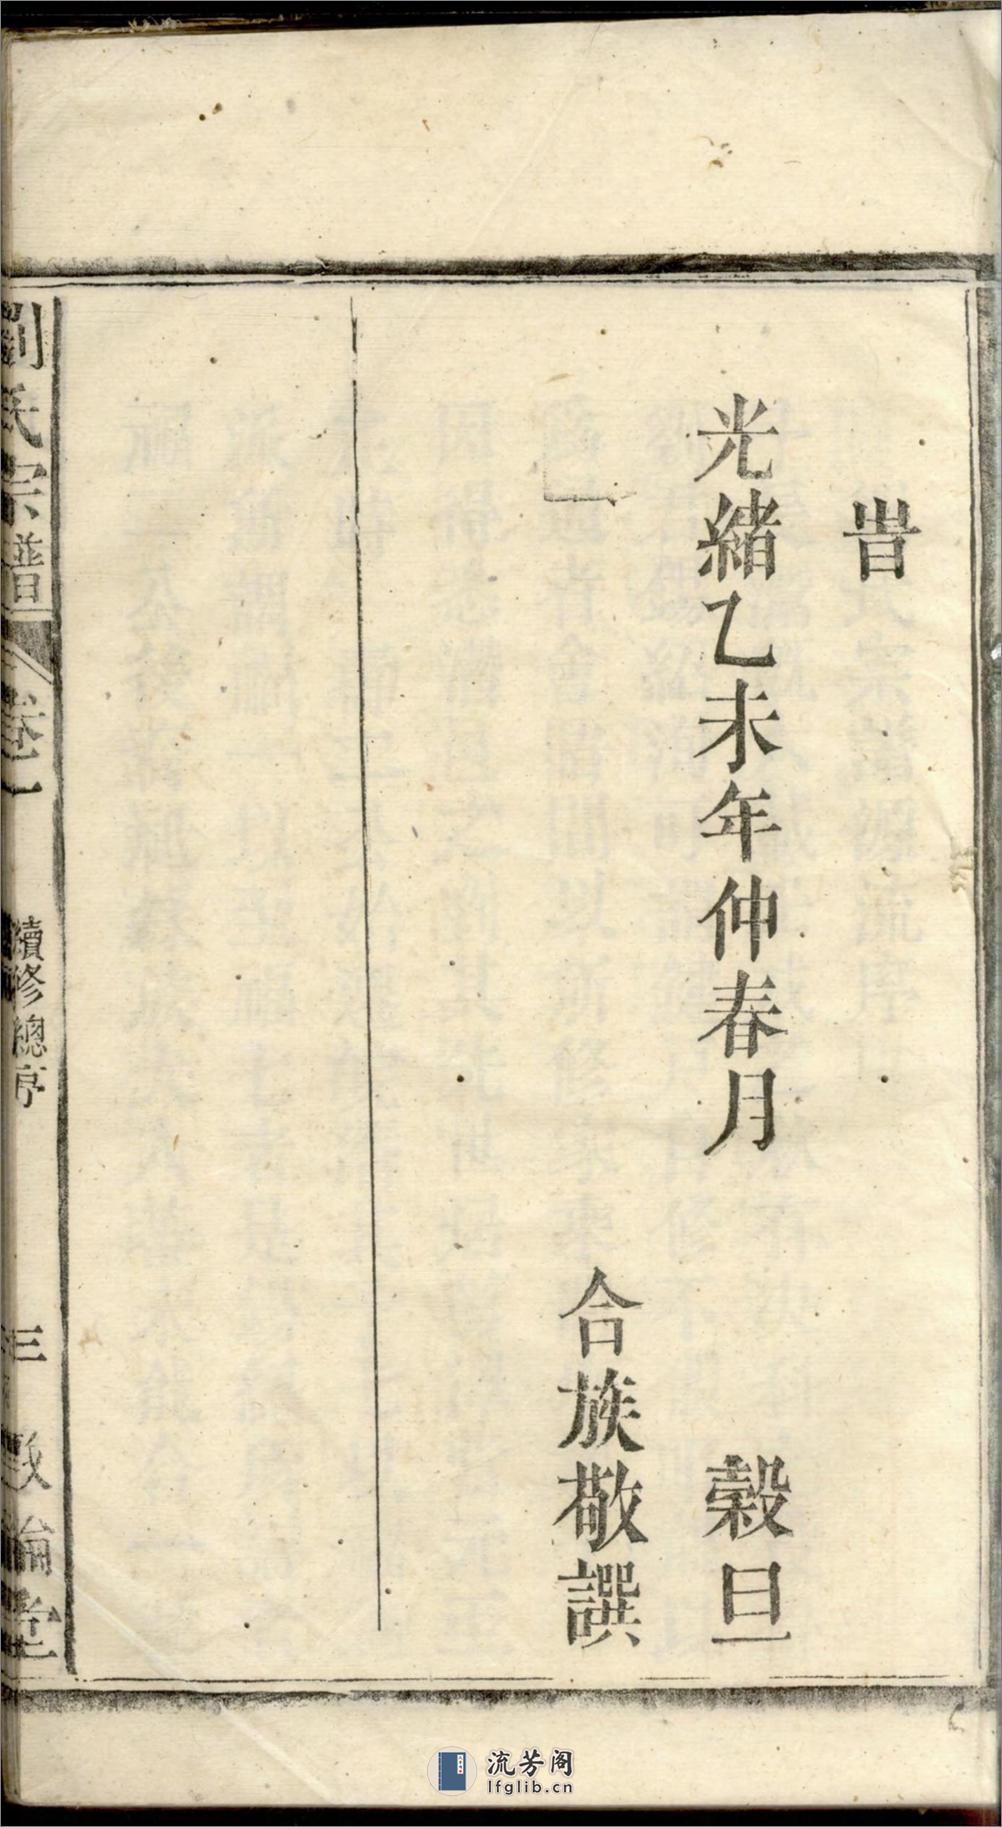 旹
光緒乙未年仲春月 穀旦
合族敬譔
劉氏宗譜 卷一 續修總序 三 敦倫堂
流芳阁
lfglib.cn